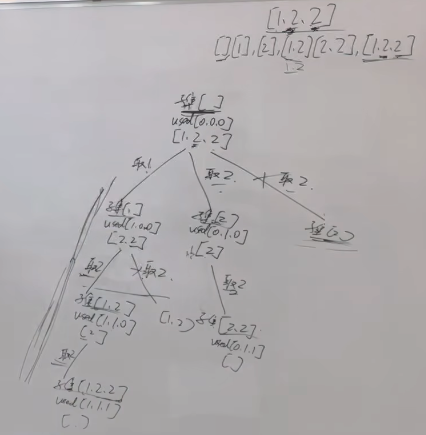 [1,2,2]
[][1],[2],[1,2][2,2],[1,2,2]
1,2
子集[ ]
used[0,0,0]
[1,2,2]
取1
取2
取2
子集[1]
used[1,0,0]
[2,2]
子集[2]
used[0,1,0]
[2]
子集[2]
取2
取2
取2
子集[1,2]
used[1,1,0]
[2]
[1,2]
子集[2,2]
used[0,1,1]
[ ]
取2
子集[1,2,2]
used[1,1,1]
[ ]